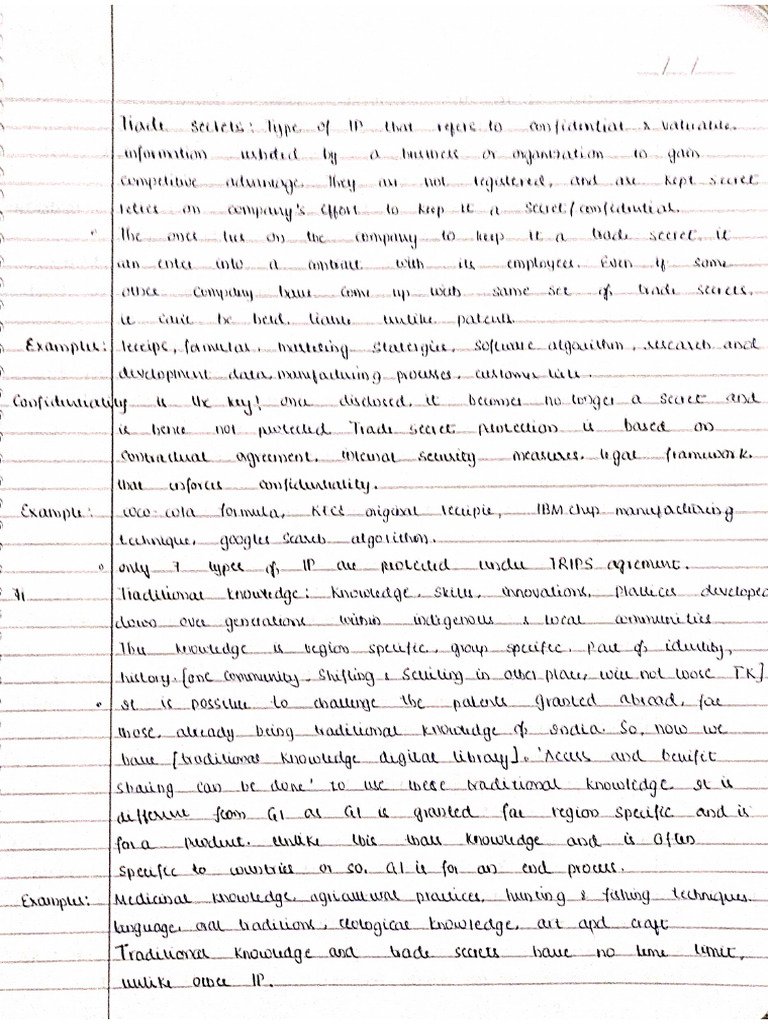 Trade secrets: Type of IP that refers to confidential & valuable
information used by a business or organization to gain
competitive advantage. They are not registered, and are kept secret
relies on company's effort to keep it a secret/confidential.
The ones lies on the company to keep it a trade secret, it
can enter into a contract with its employees. Even if some
other company have come up with same set of trade secrets,
it can't be held liable unlike patents.
Examples: receipe, formulas, marketing statergies, software algorithm, research and
development data, manufacturing processes, customer lists.
Confidentiality is the key! once disclosed, it becomes no longer a secret and
is hence not protected Trade secret protection is based on
contractual agreement, internal security measures, legal framework,
that enforces confidentiality.
Example: coco-cola formula, KFCs original receipie, IBM chip manufacturing
technique, googles search algorithm.
only 7 types of IP are protected under TRIPS agrement.
Traditional knowledge: Knowledge, skills, innovations, practices developed
down over generations within indigenous & local communities
This knowledge is region specific, group specific. Part of identity,
history. [one community. Shifting & settling in other place, will not loose TK]
It is possible to challenge the patents granted abroad, for
those, already being traditional knowledge of India. So, now we
have [traditional knowledge digital library]. 'Access and benifit
sharing can be done' to use these traditional knowledge. It is
different from GI as GI is granted for region specific and is
for a product. unlike this thats knowledge and is often
specific to countries or so. GI is for an end process.
Examples: Medicinal knowledge, agricultural practices, hunting & fishing techniques.
language, oral traditions, ecological knowledge, art and craft
Traditional knowledge and trade secrets have no time limit,
unlike other IP.